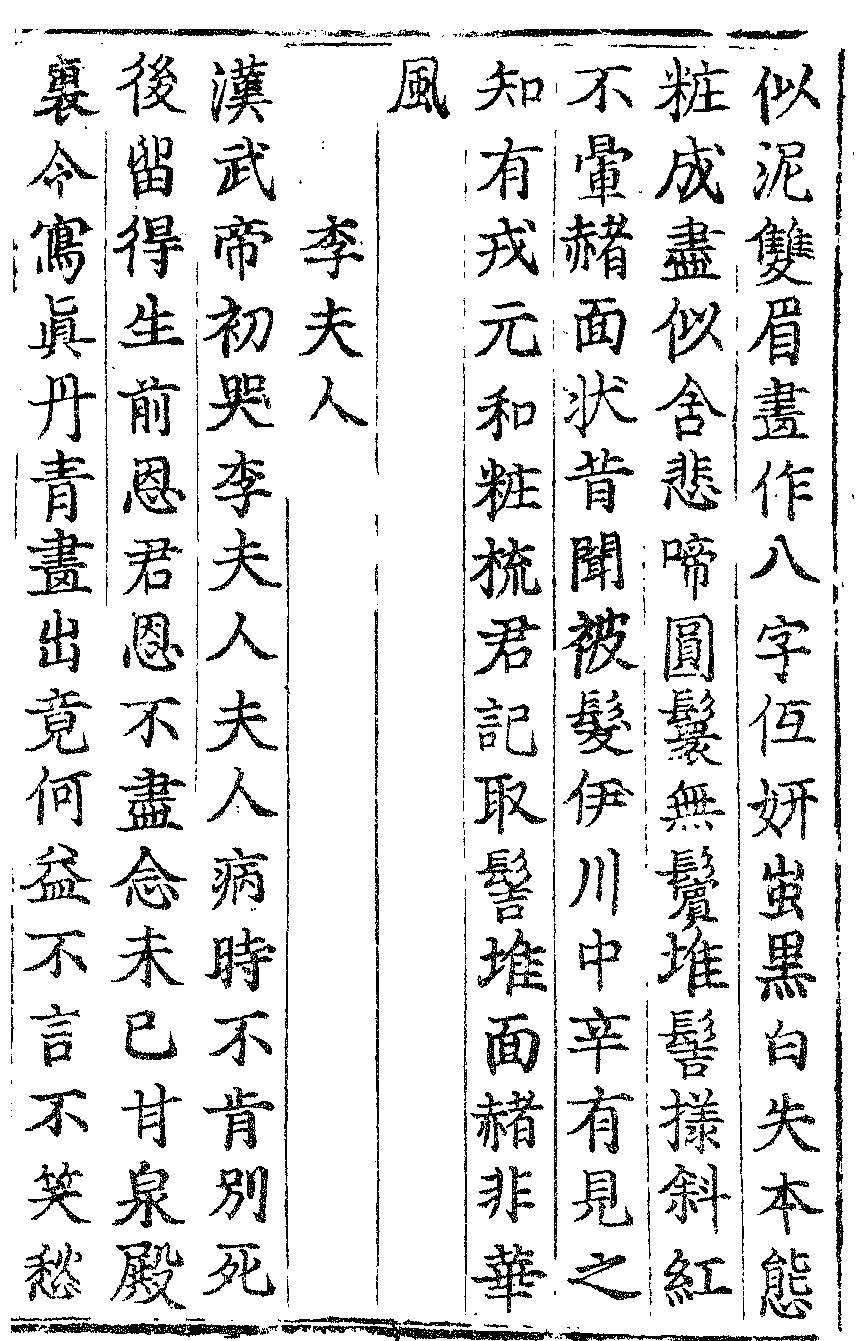 似泥雙眉畫作八字伍妍蚩黑白失本態
粧成盡似含悲啼圓鬟無鬢堆髻樣斜紅
不暈赭面狀昔聞被髮伊川中辛有見之
知有戎元和粧梳君記取髻堆面赭非華
風
李夫人
漢武帝初哭李夫人夫人病時不肯別死
後留得生前恩君恩不盡念未已甘泉殿
裏令寫眞丹青畫出竟何益不言不笑愁